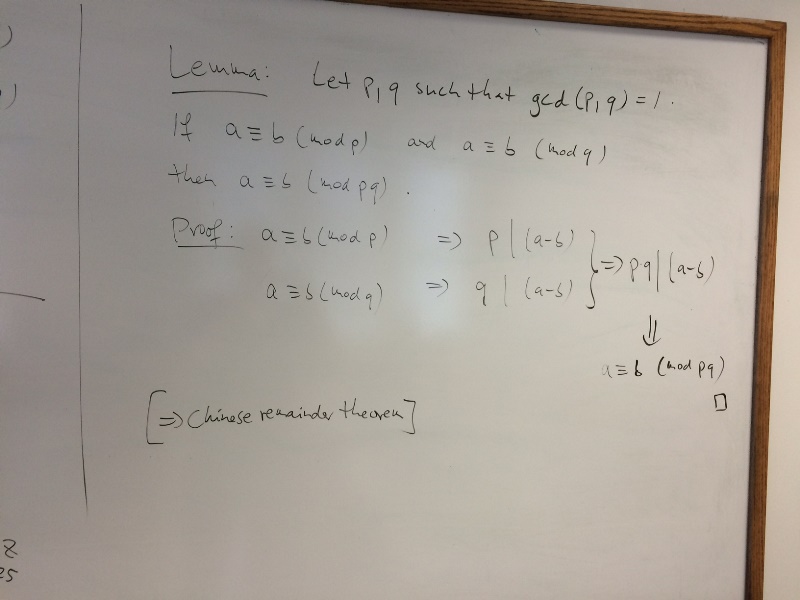 )
)
Lemma: Let p, q such that gcd(p, q) = 1.
If a ≡ b (mod p) and a ≡ b (mod q)
then a ≡ b (mod pq).
Proof: a ≡ b (mod p) => p | (a-b)
a ≡ b (mod q) => q | (a-b)
} => p·q | (a-b)
⇓
a ≡ b (mod pq)
□
[=> Chinese remainder theorem]
Z
25